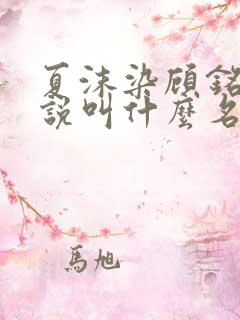 夏沫染顾铭
說叫什麼名
馬旭